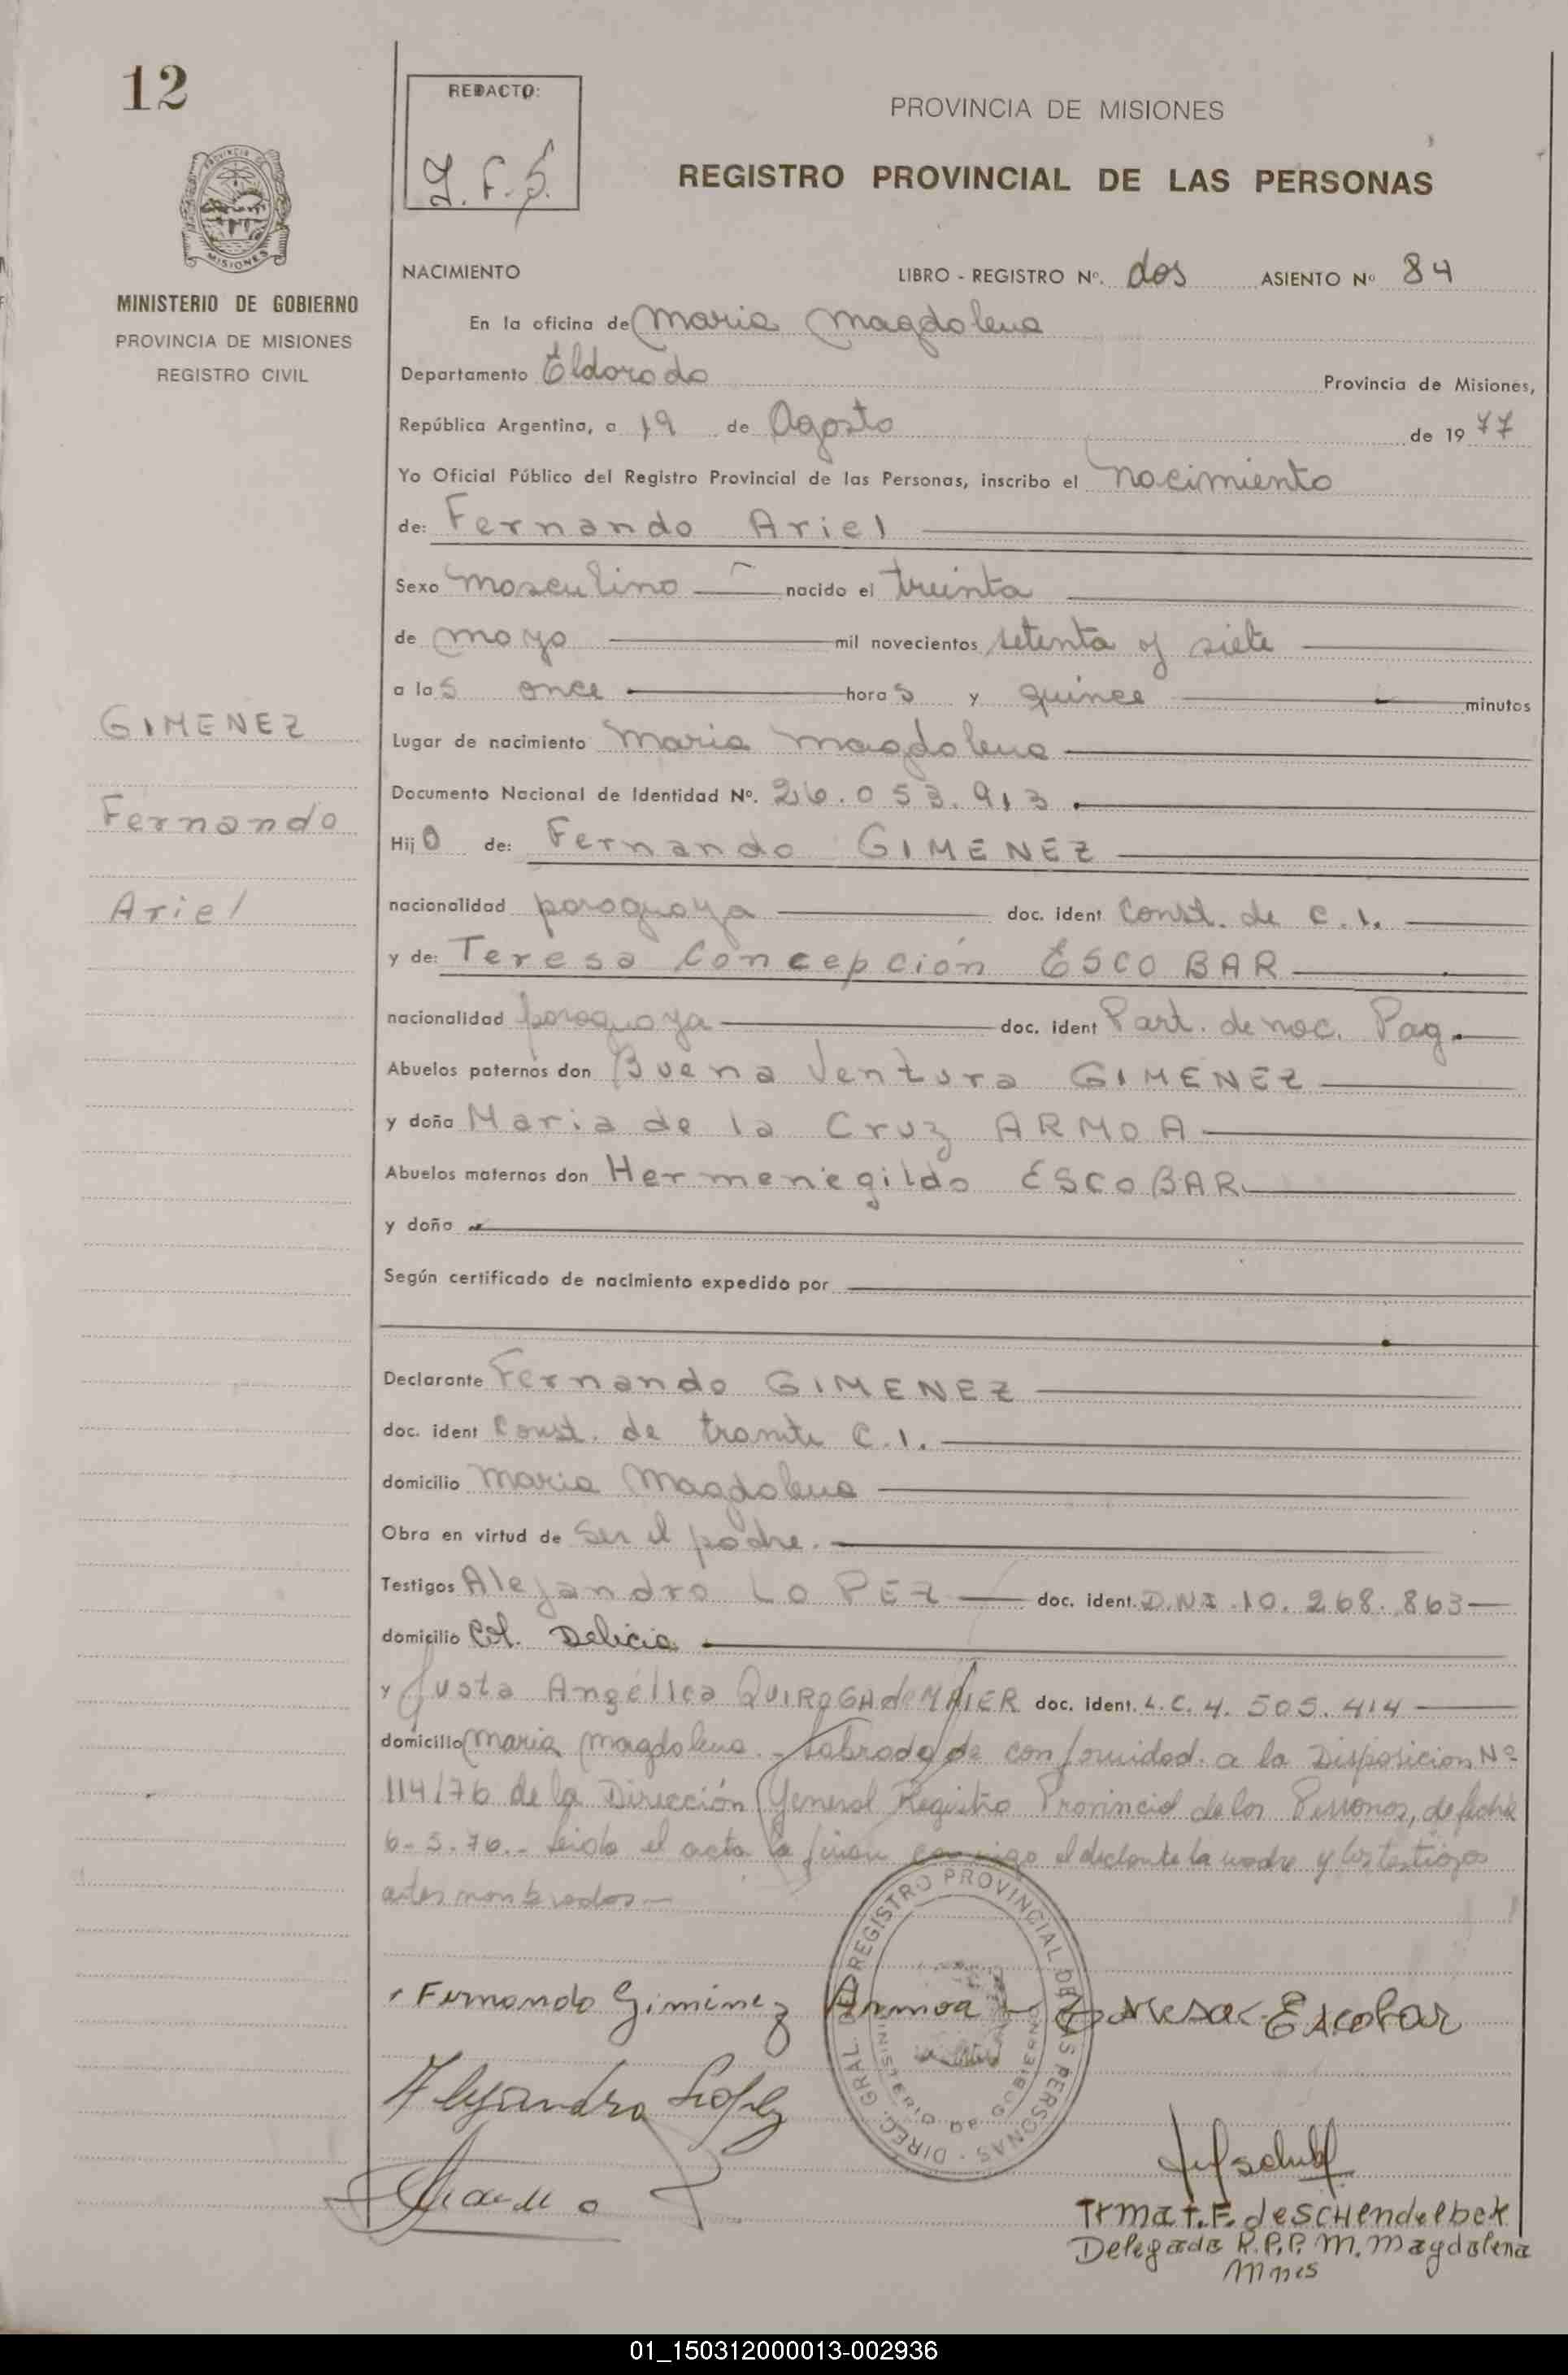 12
REDACTO:
PROVINCIA DE MISIONES
REGISTRO PROVINCIAL DE LAS PERSONAS
PROVINCIA DE
MISIONES
MINISTERIO DE GOBIERNO
PROVINCIA DE MISIONES
REGISTRO CIVIL
NACIMIENTO LIBRO - REGISTRO Nº. dos ASIENTO Nº 84
En la oficina de Maria Magdalena
Departamento Eldorado Provincia de Misiones,
República Argentina, a 19 de Agosto de 1977
Yo Oficial Público del Registro Provincial de las Personas, inscribo el nacimiento
de: Fernando Ariel
Sexo masculino nacido el treinta
de mayo mil novecientos setenta y siete
a las once horas y quince minutos
Lugar de nacimiento Maria Magdalena
Documento Nacional de Identidad Nº. 26.053.913.
Hijo de: Fernando GIMENEZ
nacionalidad paraguaya doc. ident Const. de C.I.
y de: Teresa Concepción ESCOBAR
nacionalidad paraguaya doc. ident Part. de nac. Pag.
Abuelos paternos don Buena Ventura GIMENEZ
y doña Maria de la Cruz ARMOA
Abuelos maternos don Hermenegildo ESCOBAR
y doña
Según certificado de nacimiento expedido por
Declarante Fernando GIMENEZ
doc. ident Const. de tramite C.I.
domicilio Maria Magdalena
Obra en virtud de Ser el padre.
Testigos Alejandro LOPEZ doc. ident. D.N.I. 10.268.863
domicilio Col. Delicia
y Justa Angélica QUIROGA de MAIER doc. ident. L.C. 4.505.414
domicilio Maria Magdalena. - Labrada de conformidad a la Disposicion Nº
114/76 de la Dirección General Registro Provincial de las Personas, de fecha
6-5-76.- Leida el acta la firman conmigo el declarante la madre y los testigos
antes nombrados
GIMENEZ
Fernando
Ariel
Fernando Gimenez Armoa Teresa Escobar
Alejandro Lopez
DIREC. GRAL. DEL REGISTRO PROVINCIAL DE LAS PERSONAS
MINISTERIO DE GOBIERNO
Irma t. F. de SCHendelbek
Delegada R.P.P. M. Magdalena
Mnes
01_150312000013-002936